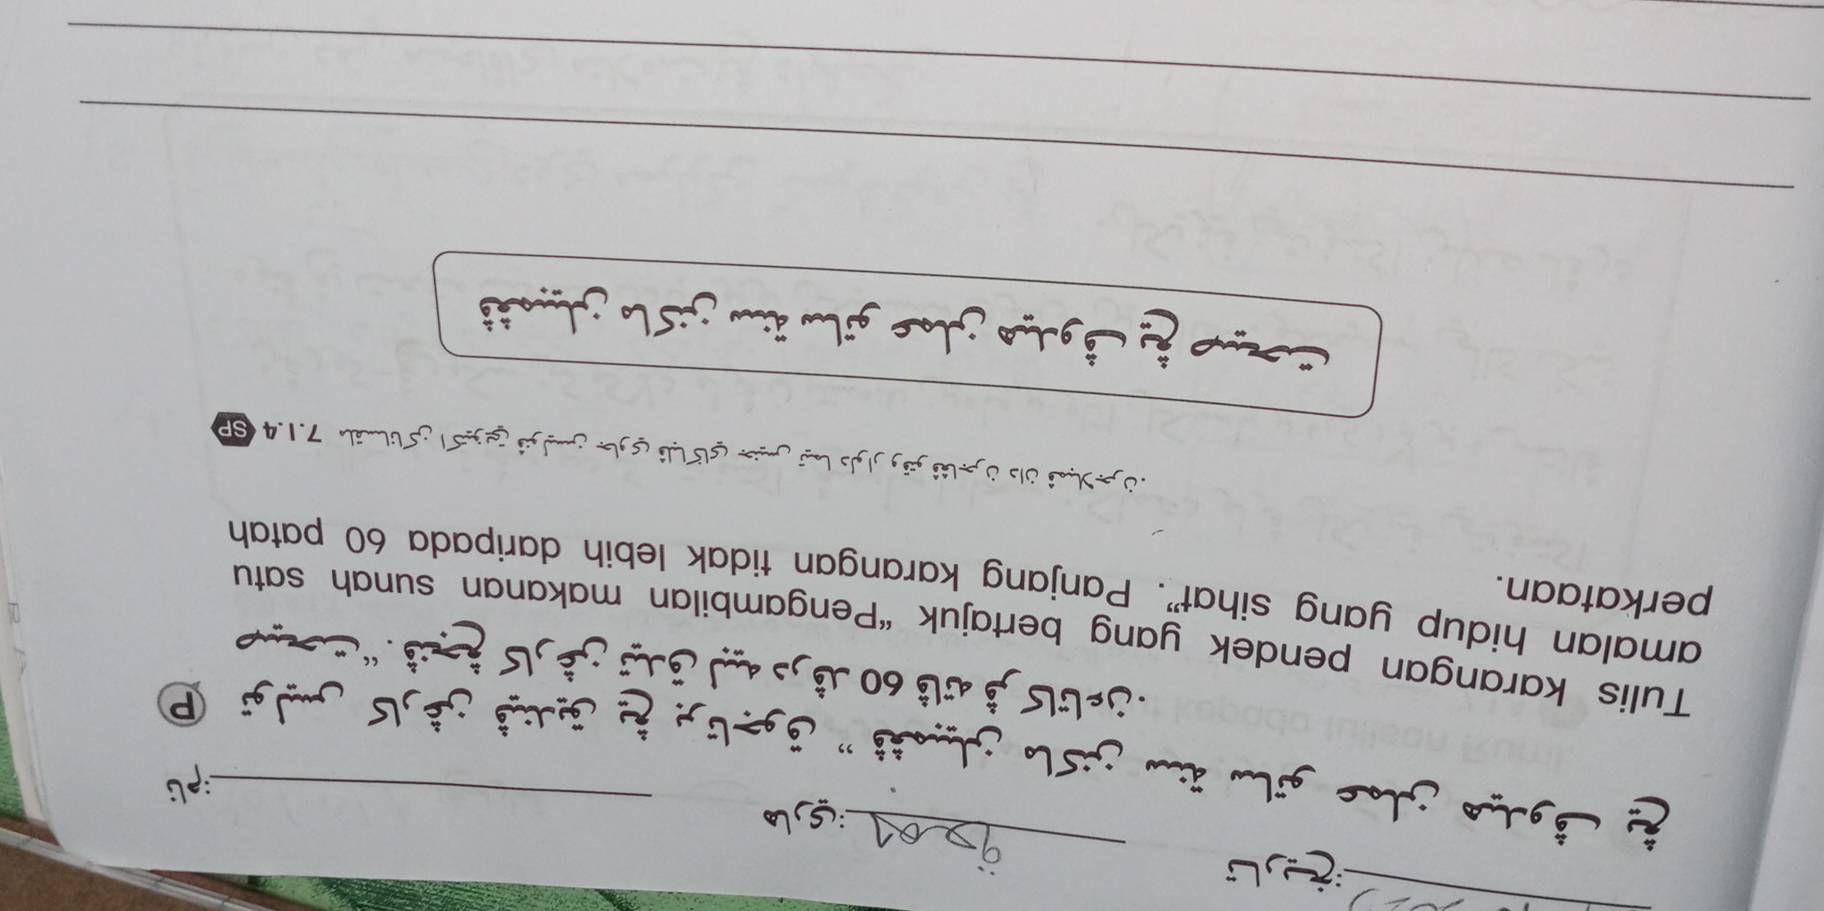 نام:
هاري:
تاريخ:
P توليس كارڠن ڤينديق يڠ برتاجوق "ڤڠمبيلن ماكنن سنه ساتو عملن هيدوڤ يڠ
صيحت". ڤنجڠ كارڠن تيدق لبيه درڤد 60 ڤاته ڤركاتاءن.
Tulis karangan pendek yang bertajuk "Pengambilan makanan sunah satu
amalan hidup yang sihat". Panjang karangan tidak lebih daripada 60 patah
perkataan.
SP 7.1.4
ڤڠمبيلن ماكنن سنه ساتو عملن هيدوڤ يڠ صيحت